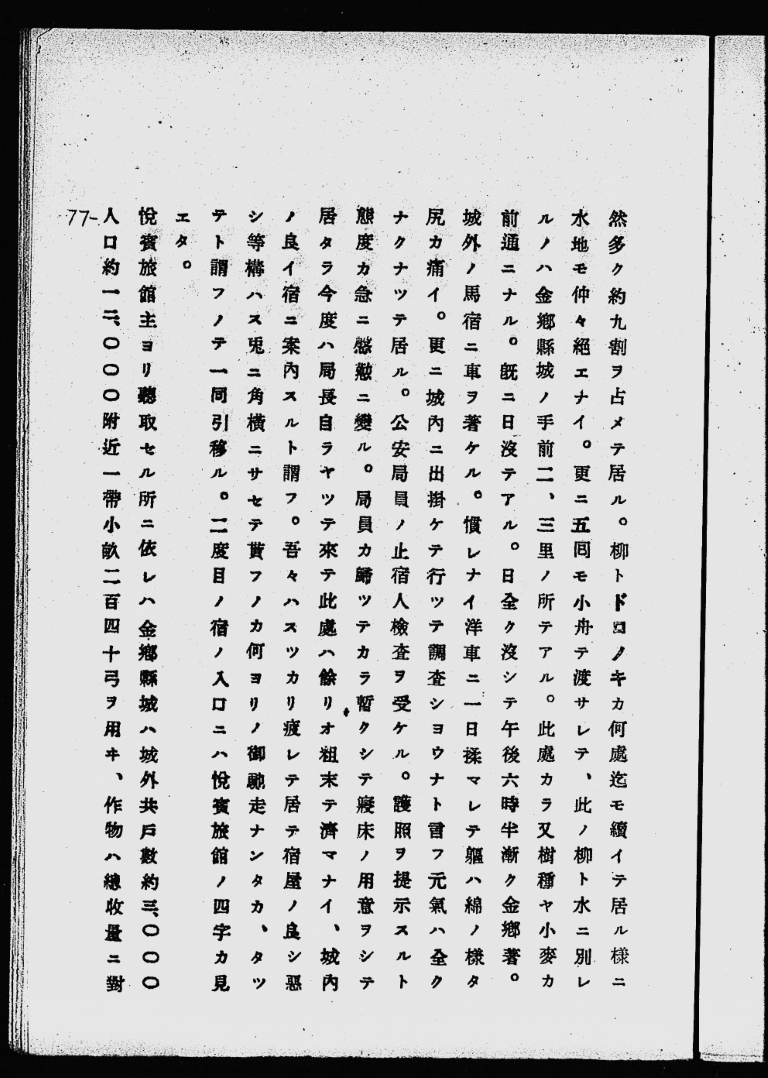 然多ク約九割ヲ占メテ居ル。柳トドロノキカ何處迄モ續イテ居ル樣ニ
水地モ仲々絕エナイ。更ニ五囘モ小舟テ渡サレテ、此ノ柳ト水ニ別レ
ルノハ金鄕縣城ノ手前二、三里ノ所テアル。此處カラ又樹種ヤ小麥カ
前通ニナル。旣ニ日沒テアル。日全ク沒シテ午後六時半漸ク金鄕著。
城外ノ馬宿ニ車ヲ著ケル。慣レナイ洋車ニ一日揉マレテ軀ハ綿ノ樣タ
尻カ痛イ。更ニ城內ニ出掛ケテ行ッテ調査シヨウナト言フ元氣ハ全ク
ナクナツテ居ル。公安局員ノ止宿人檢査ヲ受ケル。護照ヲ提示スルト
態度カ急ニ慇懃ニ變ル。局員カ歸ツテカラ暫クシテ寢床ノ用意ヲシテ
居タラ今度ハ局長自ラヤツテ來テ此處ハ餘リオ粗末テ濟マナイ、城內
ノ良イ宿ニ案內スルト謂フ。吾々ハスツカリ疲レテ居テ宿屋ノ良シ惡
シ等構ハス兎ニ角橫ニサセテ貰フノカ何ヨリノ御馳走ナンタカ、タツ
テト謂フノテ一同引移ル。二度目ノ宿ノ入口ニハ悅賓旅館ノ四字カ見
エタ。
悅賓旅館主ヨリ聽取セル所ニ依レハ金鄕縣城ハ城外共戶數約三、〇〇〇
人口約一二、〇〇〇附近一帶小畝二百四十弓ヲ用ヰ、作物ハ總收量ニ對
77-